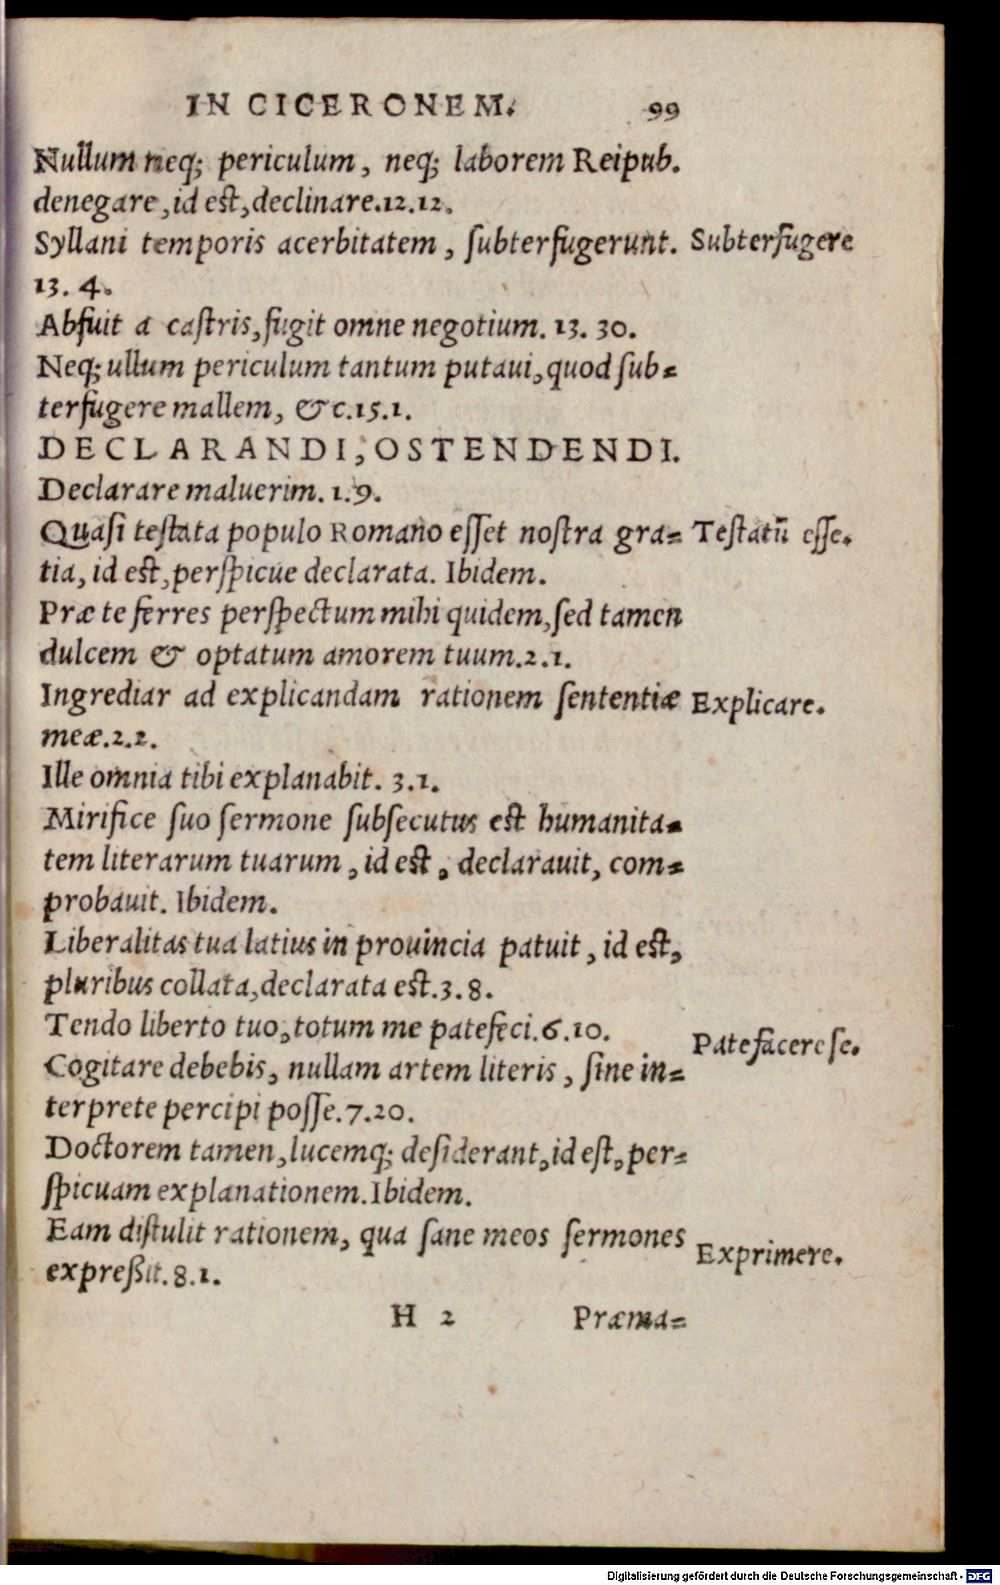 IN CICERONEM. 99
Nullum neq; periculum, neq; laborem Reipub.
denegare, id est, declinare. 12. 12.
Syllani temporis acerbitatem, ſubterfugerunt. Subterfugere
13. 4.
Abfuit a caſtris, fugit omne negotium. 13. 30.
Neq; ullum periculum tantum putavi, quod ſub-
terfugere mallem, &c. 15. 1.
DECLARANDI, OSTENDENDI.
Declarare maluerim. 1. 9.
Quaſi teſtata populo Romano eſſet noſtra gra- Teſtatū eſſe.
tia, id eſt, perſpicue declarata. Ibidem.
Præ te ferres perſpectum mihi quidem, ſed tamen
dulcem & optatum amorem tuum. 2. 1.
Ingrediar ad explicandam rationem ſententiæ Explicare.
meæ. 2. 2.
Ille omnia tibi explanabit. 3. 1.
Mirifice ſuo ſermone ſubſecutus eſt humanita-
tem literarum tuarum, id eſt, declarauit, com-
probauit. Ibidem.
Liberalitas tua latius in prouincia patuit, id eſt,
pluribus collata, declarata eſt. 3. 8.
Tendo liberto tuo, totum me patefeci. 6. 10.
Patefacere ſe.
Cogitare debebis, nullam artem literis, ſine in-
terprete percipi poſſe. 7. 20.
Doctorem tamen, lucemq; deſiderant, id eſt, per-
ſpicuam explanationem. Ibidem.
Eam diſtulit rationem, qua ſane meos ſermones
Exprimere.
expreßit. 8. 1.
H 2 Præma-
Digitalisierung gefördert durch die Deutsche Forschungsgemeinschaft - DFG